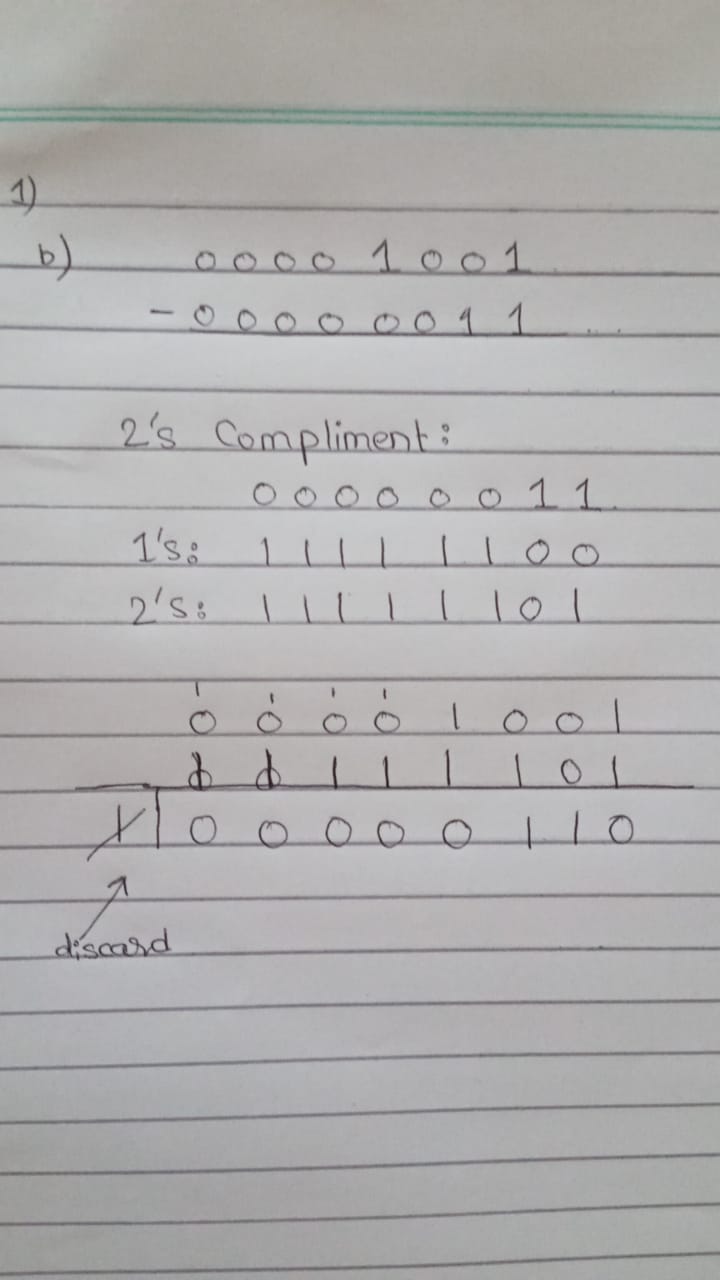 1)
b) 0 0 0 0 1 0 0 1
- 0 0 0 0 0 0 1 1
2's Compliment:
0 0 0 0 0 0 1 1
1's: 1 1 1 1 1 1 0 0
2's: 1 1 1 1 1 1 0 1
1 1 1 1
0 0 0 0 1 0 0 1
1 1 1 1 1 1 0 1
1 0 0 0 0 0 1 1 0
discard